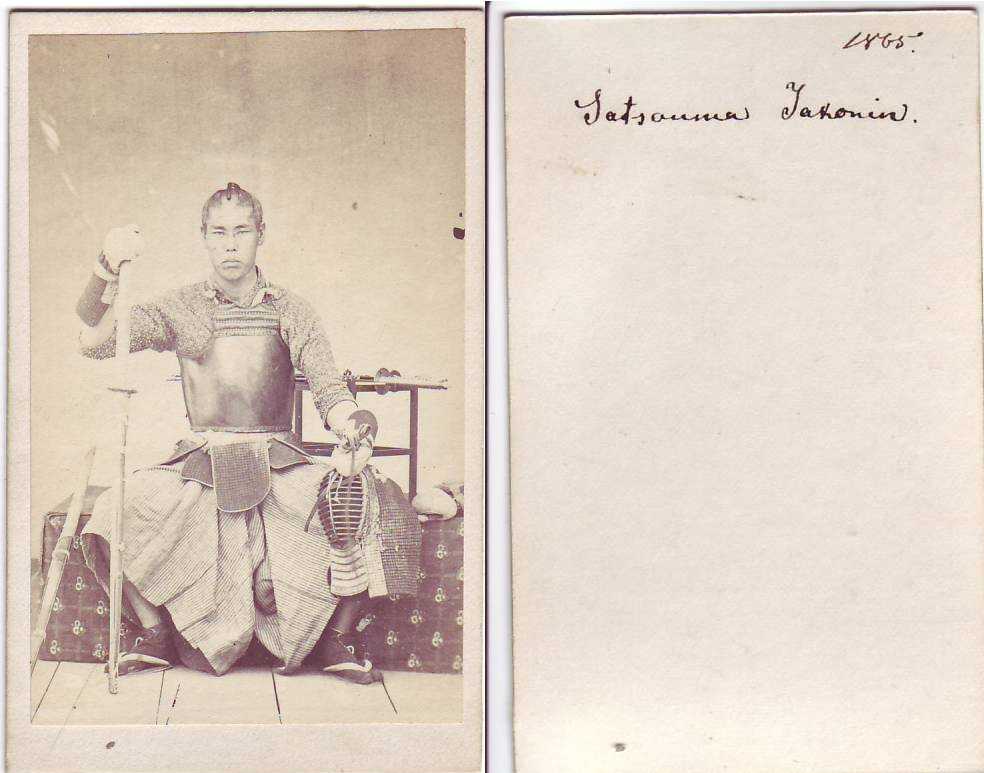 1865.
Satsouma Takonin.